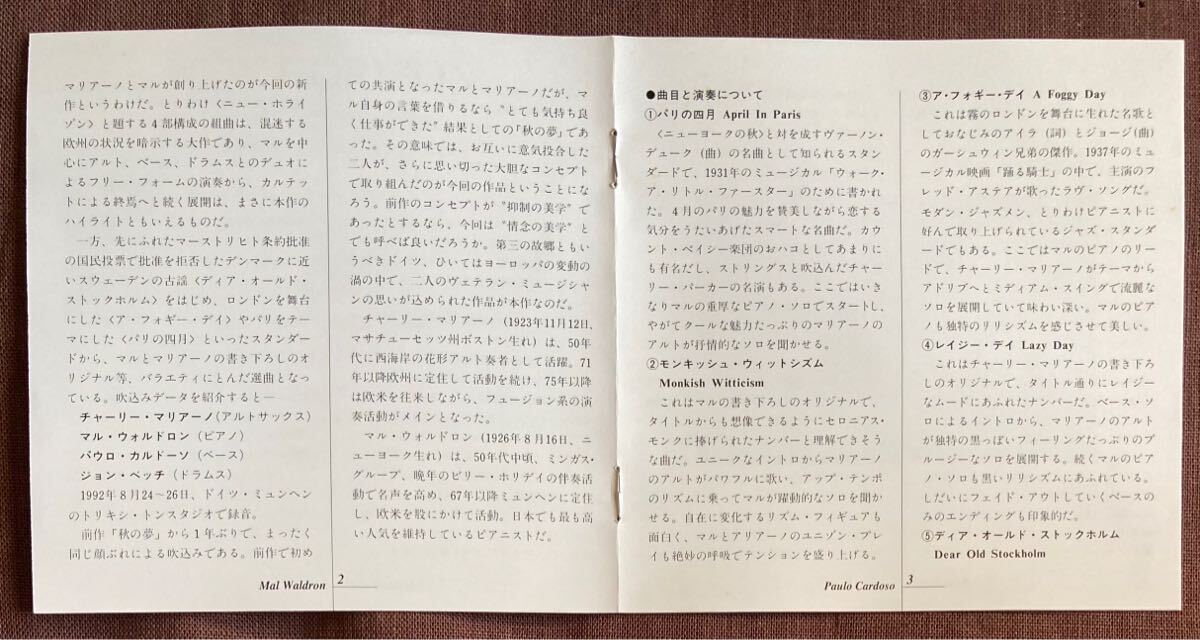 マリアーノとマルが創り上げたのが今回の新
作というわけだ。とりわけ〈ニュー・ホライ
ゾン〉と題する4部構成の組曲は、混迷する
欧州の状況を暗示する大作であり、マルを中
心にアルト、ベース、ドラムスとのデュオに
よるフリー・フォームの演奏から、カルテッ
トによる終焉へと続く展開は、まさに本作の
ハイライトともいえるものだ。
一方、先にふれたマーストリヒト条約批准
の国民投票で批准を拒否したデンマークに近
いスウェーデンの古謡〈ディア・オールド・
ストックホルム〉をはじめ、ロンドンを舞台
にした〈ア・フォギー・デイ〉やパリをテー
マにした〈パリの四月〉といったスタンダー
ドから、マルとマリアーノの書き下ろしのオ
リジナル等、バラエティにとんだ選曲となっ
ている。吹込みデータを紹介すると―
チャーリー・マリアーノ(アルトサックス)
マル・ウォルドロン(ピアノ)
パウロ・カルドーソ(ベース)
ジョン・ベッチ(ドラムス)
1992年8月24〜26日、ドイツ・ミュンヘン
のトリキシ・トンスタジオで録音。
前作「秋の夢」から1年ぶりで、まったく
同じ顔ぶれによる吹込みである。前作で初め
Mal Waldron
2
ての共演となったマルとマリアーノだが、マ
ル自身の言葉を借りるなら〝とても気持ち良
く仕事ができた〟結果としての「秋の夢」であ
った。その意味では、お互いに意気投合した
二人が、さらに思い切った大胆なコンセプト
で取り組んだのが今回の作品ということにな
ろう。前作のコンセプトが〝抑制の美学〟で
あったとするなら、今回は〝情念の美学〟と
でも呼べば良いだろうか。第三の故郷ともい
うべきドイツ、ひいてはヨーロッパの変動の
渦の中で、二人のヴェテラン・ミュージシャ
ンの思いが込められた作品が本作なのだ。
チャーリー・マリアーノ(1923年11月12日、
マサチューセッツ州ボストン生れ)は、50年
代に西海岸の花形アルト奏者として活躍。71
年以降欧州に定住して活動を続け、75年以降
は欧米を往来しながら、フュージョン系の演
奏活動がメインとなった。
マル・ウォルドロン(1926年8月16日、ニ
ューヨーク生れ)は、50年代中頃、ミンガス・
グループ、晩年のビリー・ホリデイの伴奏活
動で名声を高め、67年以降ミュンヘンに定住
し、欧米を股にかけて活動。日本でも最も高
い人気を維持しているピアニストだ。
●曲目と演奏について
①パリの四月 April In Paris
〈ニューヨークの秋〉と対を成すヴァーノン・
デューク(曲)の名曲として知られるスタン
ダードで、1931年のミュージカル「ウォーク・
ア・リトル・ファースター」のために書かれ
た。4月のパリの魅力を賛美しながら恋する
気分をうたいあげたスマートな名曲だ。カウ
ント・ベイシー楽団のおハコとしてあまりに
も有名だし、ストリングスと吹込んだチャー
リー・パーカーの名演もある。ここではいき
なりマルの重厚なピアノ・ソロでスタートし、
やがてクールな魅力たっぷりのマリアーノの
アルトが抒情的なソロを聞かせる。
②モンキッシュ・ウィットシズム
Monkish Witticism
これはマルの書き下ろしのオリジナルで、
タイトルからも想像できるようにセロニアス・
モンクに捧げられたナンバーと理解できそう
な曲だ。ユニークなイントロからマリアーノ
のアルトがパワフルに歌い、アップ・テンポ
のリズムに乗ってマルが躍動的なソロを聞か
せる。自在に変化するリズム・フィギュアも
面白く、マルとアリアーノのユニゾン・プレ
イも絶妙の呼吸でテンションを盛り上げる。
Paulo Cardoso
3
③ア・フォギー・デイ A Foggy Day
これは霧のロンドンを舞台に生れた名歌と
しておなじみのアイラ(詞)とジョージ(曲)
のガーシュウィン兄弟の傑作。1937年のミュ
ージカル映画「踊る騎士」の中で、主演のフ
レッド・アステアが歌ったラヴ・ソングだ。
モダン・ジャズメン、とりわけピアニストに
好んで取り上げられているジャズ・スタンダ
ードでもある。ここではマルのピアノのリー
ドで、チャーリー・マリアーノがテーマから
アドリブへとミディアム・スイングで流麗な
ソロを展開していて味わい深い。マルのピア
ノも独特のリリシズムを感じさせて美しい。
④レイジー・デイ Lazy Day
これはチャーリー・マリアーノの書き下ろ
しのオリジナルで、タイトル通りにレイジー
なムードにあふれたナンバーだ。ベース・ソ
ロによるイントロから、マリアーノのアルト
が独特の黒っぽいフィーリングたっぷりのブ
ルージーなソロを展開する。続くマルのピア
ノ・ソロも黒いリリシズムにあふれている。
しだいにフェイド・アウトしていくベースの
みのエンディングも印象的だ。
⑤ディア・オールド・ストックホルム
Dear Old Stockholm